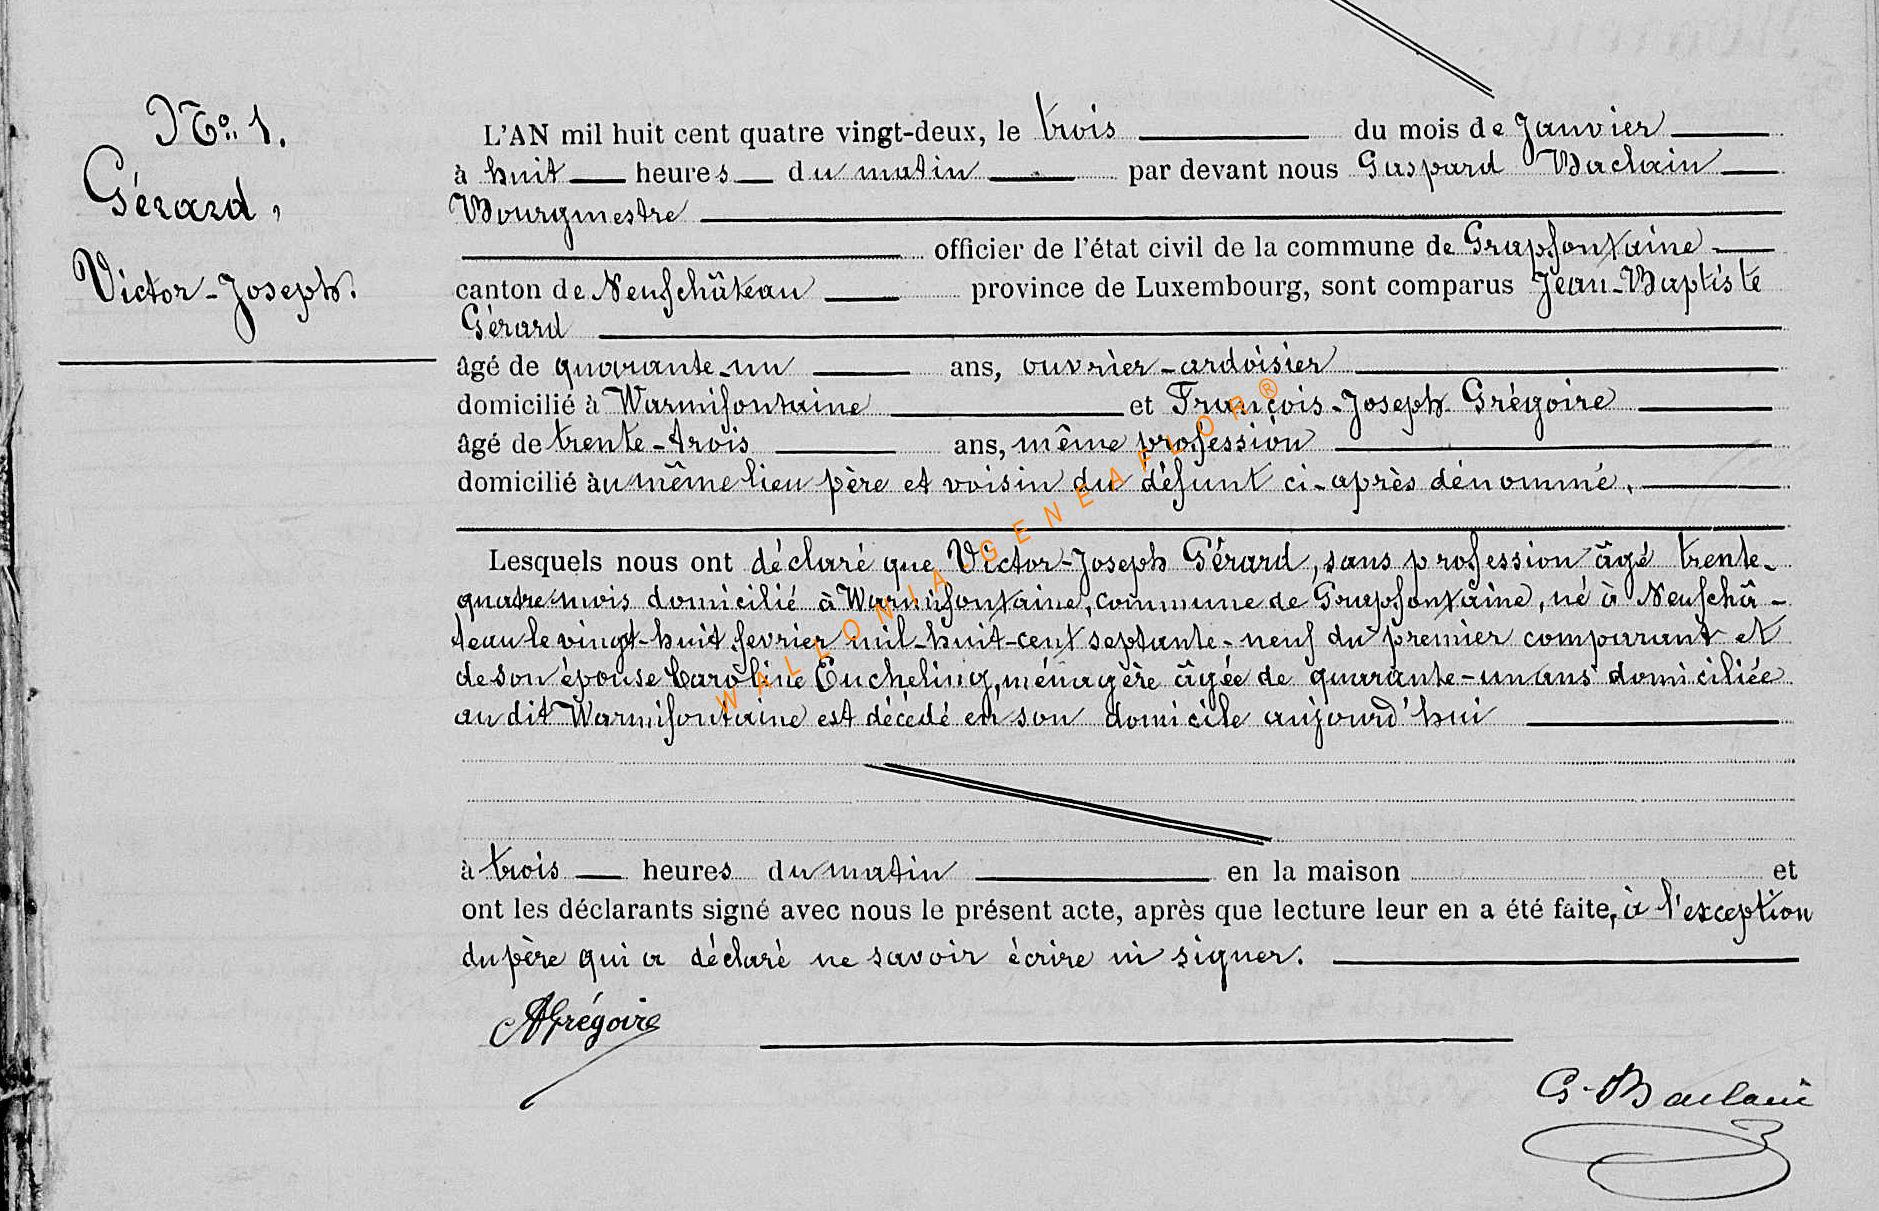 No. 1.
Gérard,
Victor-Joseph.
L'AN mil huit cent quatre vingt-deux, le trois du mois de Janvier
à huit heures du matin par devant nous Gaspard Baclain
Bourgmestre
officier de l'état civil de la commune de Grapfontaine
canton de Neufchâteau province de Luxembourg, sont comparus Jean-Baptiste
Gérard
âgé de quarante-un ans, ouvrier-ardoisier
domicilié à Warmifontaine et François-Joseph Grégoire
âgé de trente-trois ans, même profession
domicilié au même lieu père et voisin du défunt ci-après dénommé.
Lesquels nous ont déclaré que Victor-Joseph Gérard, sans profession âgé trente-
quatre mois domicilié à Warmifontaine, commune de Grapfontaine, né à Neufchâ-
teau le vingt-huit fevrier mil-huit-cent septante-neuf du premier comparant et
de son épouse Caroline Eucheling, ménagère âgée de quarante-un ans domiciliée
au dit Warmifontaine est décédé en son domicile aujourd'hui
à trois heures du matin en la maison et
ont les déclarants signé avec nous le présent acte, après que lecture leur en a été faite, à l'exception
du père qui a déclaré ne savoir écrire ni signer.
Grégoire
G. Baclain
WALLONIA-GENEAFLOR®